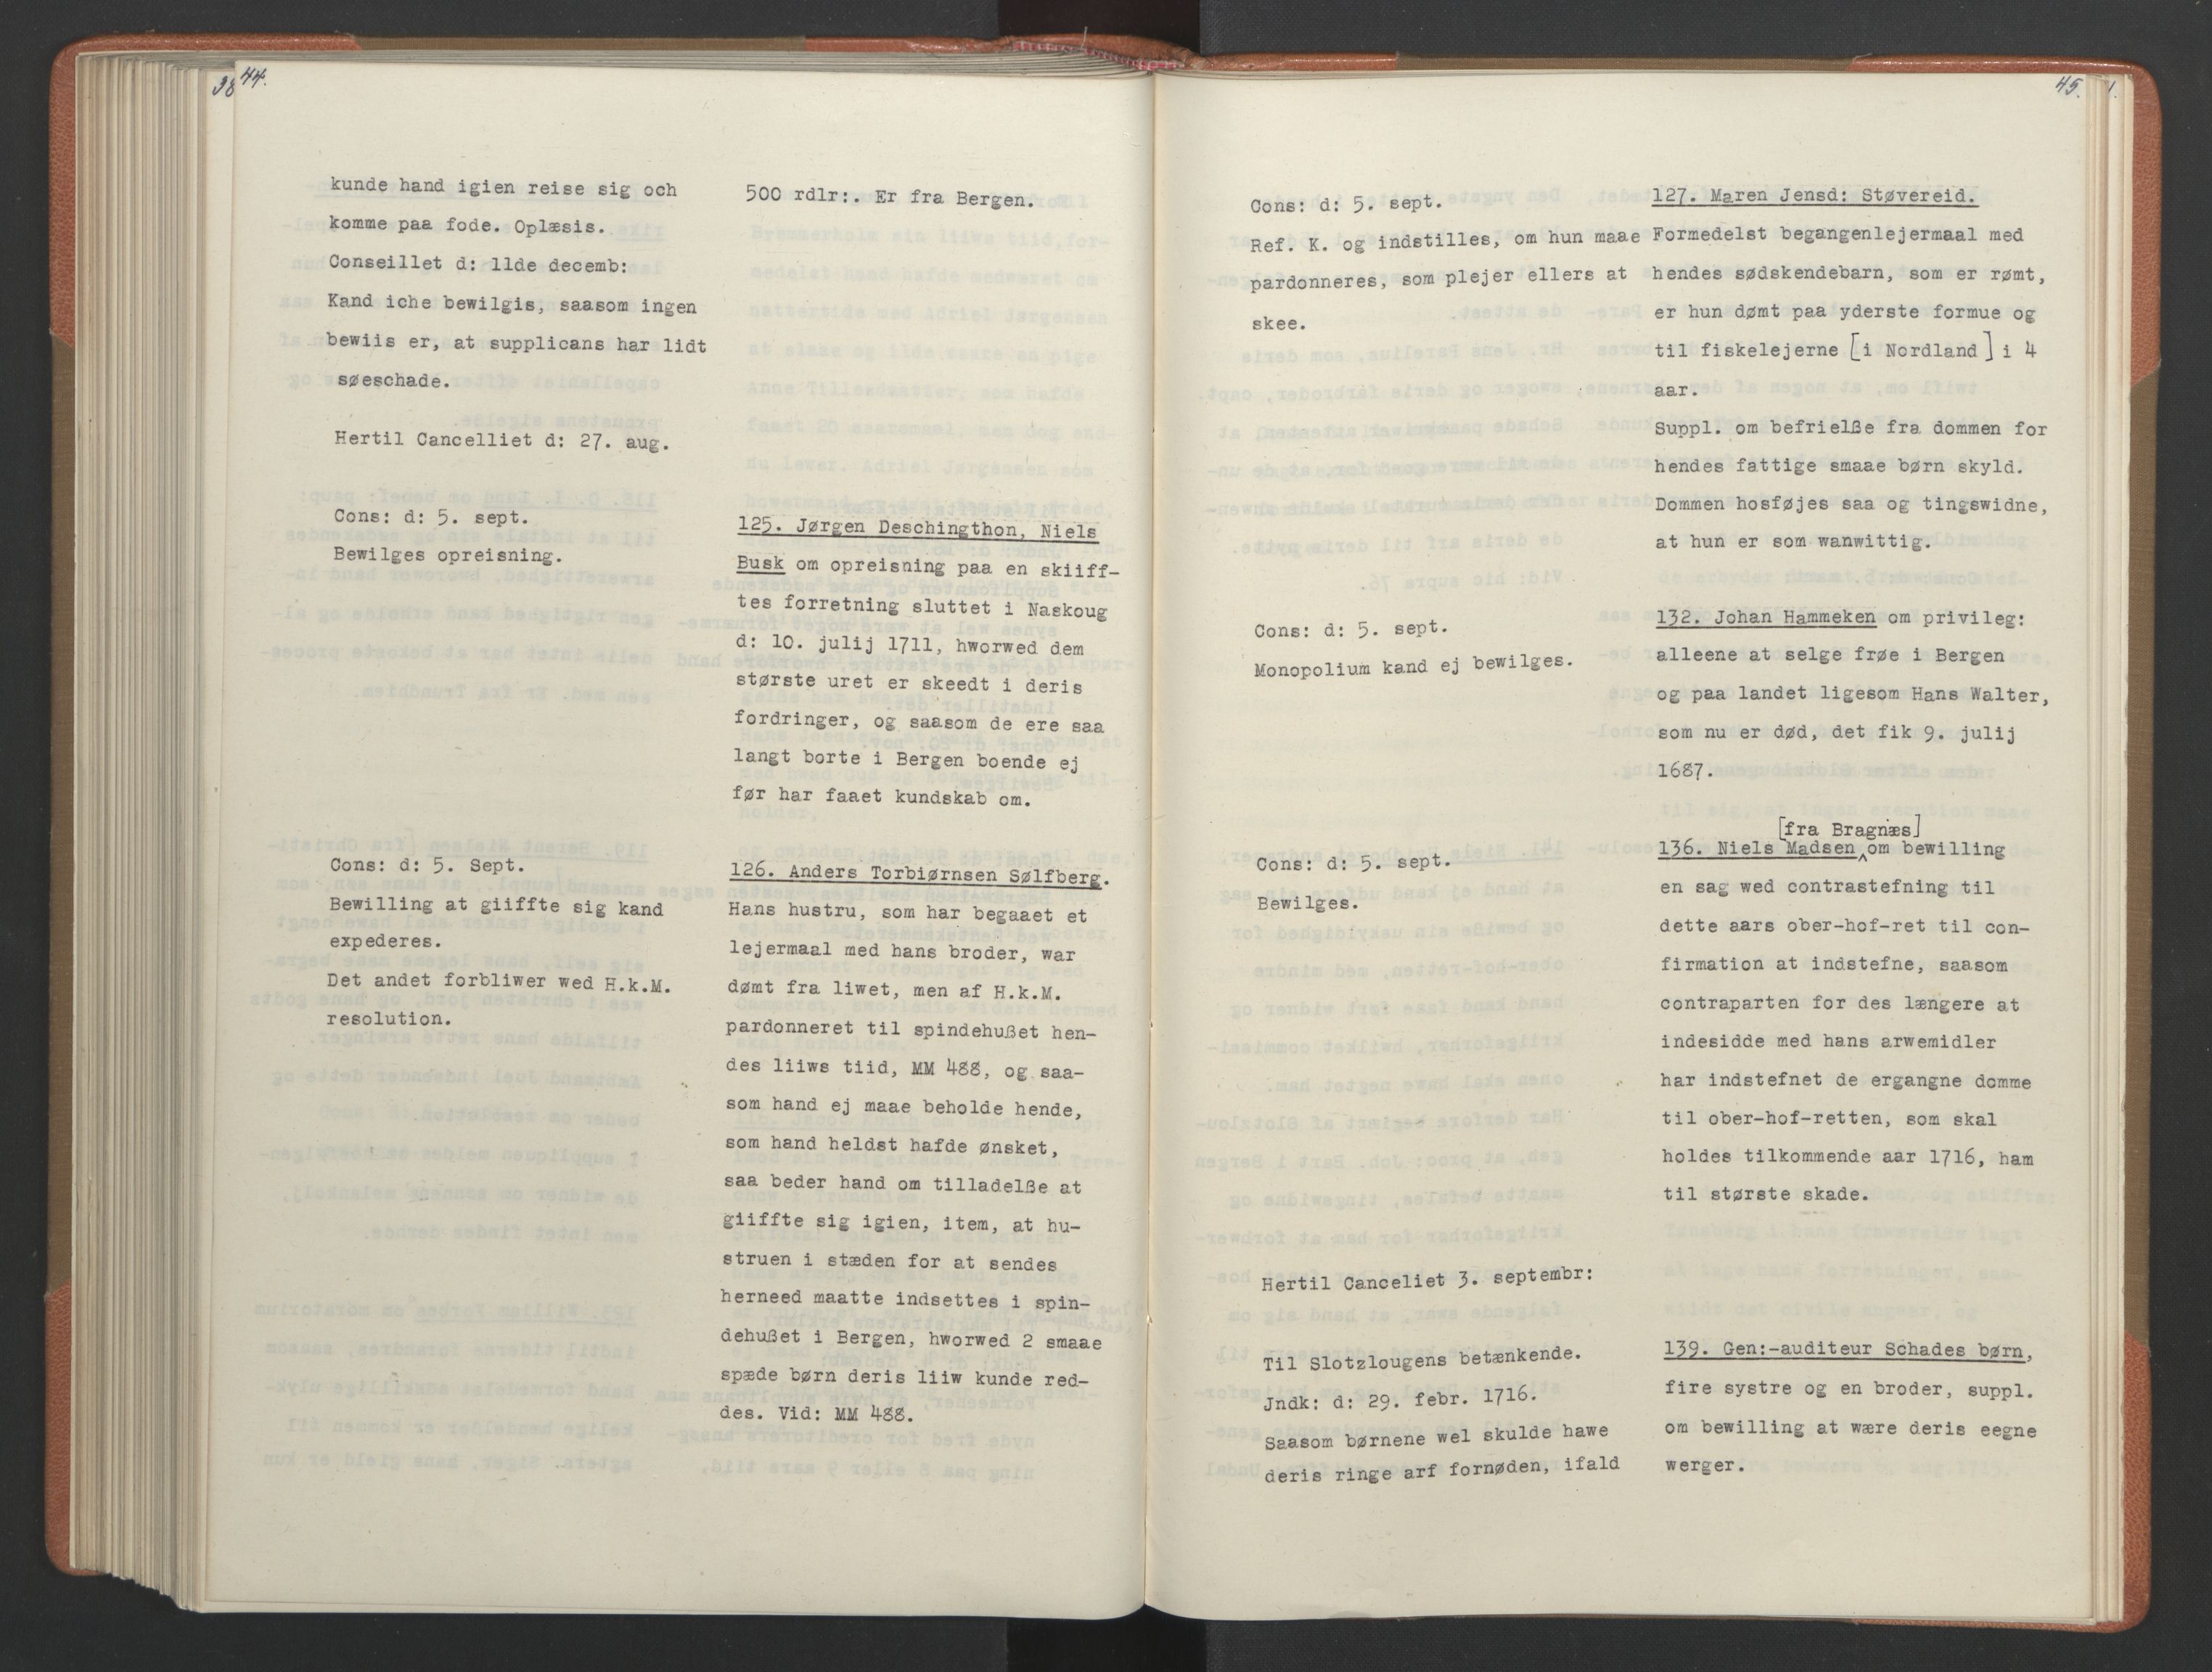 38
44.
kunde hand igien reise sig och
komme paa fode. Oplæsis.
Conseillet d: 11de decemb:
Kand iche bewilgis, saasom ingen
bewiis er, at supplicans har lidt
søeschade.
500 rdlr:. Er fra Bergen.
Hertil Cancelliet d: 27. aug.
Cons: d: 5. sept.
Bewilges opreisning.
125. Jørgen Deschingthon, Niels
Busk om opreisning paa en skiiff-
tes forretning sluttet i Naskoug
d: 10. julij 1711, hworwed dem
største uret er skeedt i deris
fordringer, og saasom de ere saa
langt borte i Bergen boende ej
før har faaet kundskab om.
Cons: d: 5. Sept.
Bewilling at giiffte sig kand
expederes.
Det andet forbliwer wed H.k.M.
resolution.
126. Anders Torbiørnsen Sølfberg.
Hans hustru, som har begaaet et
lejermaal med hans broder, war
dømt fra liwet, men af H.k.M.
pardonneret til spindehußet hen-
des liiws tiid, MM 488, og saa-
som hand ej maae beholde hende,
som hand heldst hafde ønsket,
saa beder hand om tilladelße at
giiffte sig igien, item, at hu-
struen i stæden for at sendes
herneed maatte indsettes i spin-
dehußet i Bergen, hworwed 2 smaae
spæde børn deris liiw kunde red-
des. Vid: MM 488.
45.
1.
Cons: d: 5. sept.
Ref. K. og indstilles, om hun maae
pardonneres, som plejer ellers at
skee.
127. Maren Jensd: Støvereid.
Formedelst begangenlejermaal med
hendes sødskendebarn, som er rømt,
er hun dømt paa yderste formue og
til fiskelejerne [i Nordland] i 4
aar.
Suppl. om befrielße fra dommen for
hendes fattige smaae børn skyld.
Dommen hosføjes saa og tingswidne,
at hun er som wanwittig.
Cons: d: 5. sept.
Monopolium kand ej bewilges.
132. Johan Hammeken om privileg:
alleene at selge frøe i Bergen
og paa landet ligesom Hans Walter,
som nu er død, det fik 9. julij
1687.
Cons: d: 5. sept.
Bewilges.
[fra Bragnæs]
136. Niels Madsen ^om bewilling
en sag wed contrastefning til
dette aars ober-hof-ret til con-
firmation at indstefne, saasom
contraparten for des længere at
indesidde med hans arwemidler
har indstefnet de ergangne domme
til ober-hof-retten, som skal
holdes tilkommende aar 1716, ham
til største skade.
Hertil Canceliet 3. septembr:
Til Slotzlougens betænkende.
Jndk: d: 29. febr. 1716.
Saasom børnene wel skulde hawe
deris ringe arf fornøden, ifald
139. Gen:-auditeur Schades børn,
fire systre og en broder, suppl.
om bewilling at wære deris eegne
werger.